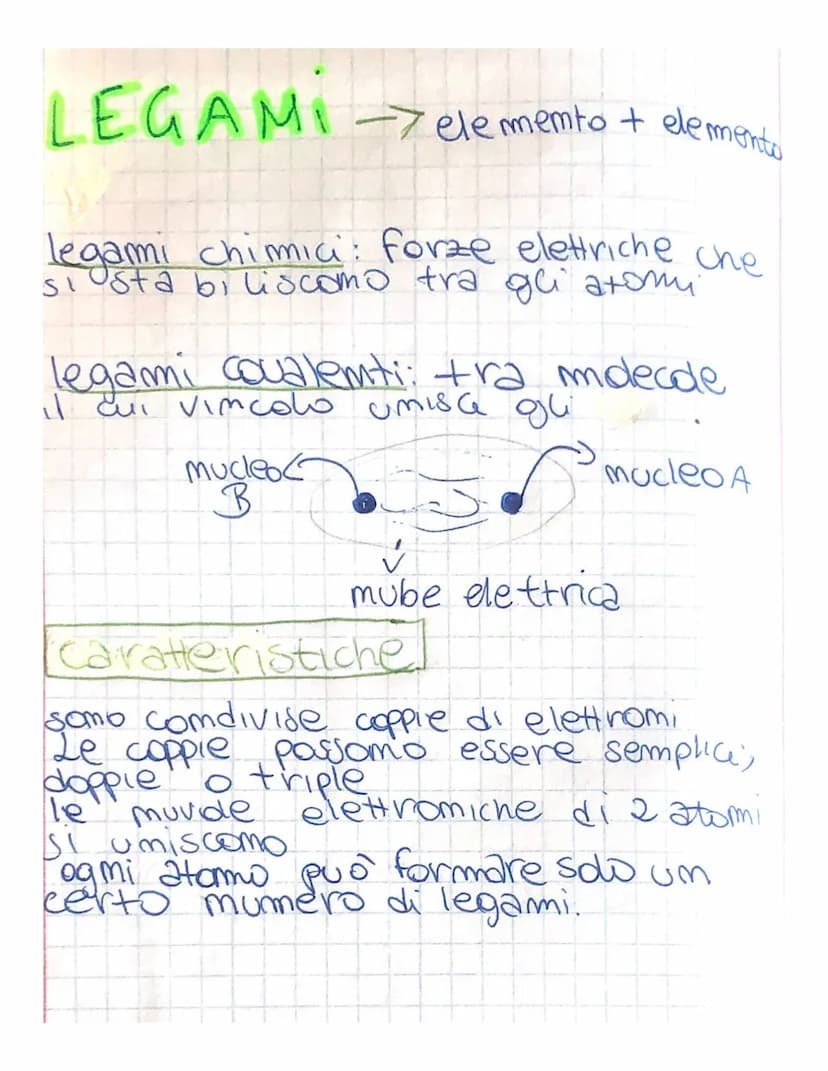 LEGAMI → elemento + elemento
legami chimici: forze elettriche che
si stabiliscono tra gli atomi
legami covalenti: tra molecole
il cui vincolo unisce gli
nucleo
B
nucleo A
nube elettrica
caratteristiche
sono condivise coppie di elettroni
Le coppie possono essere semplici,
doppie o triple
le nuvole elettroniche di 2 atomi
si uniscono
ogni atomo può formare solo un
certo numero di legami.